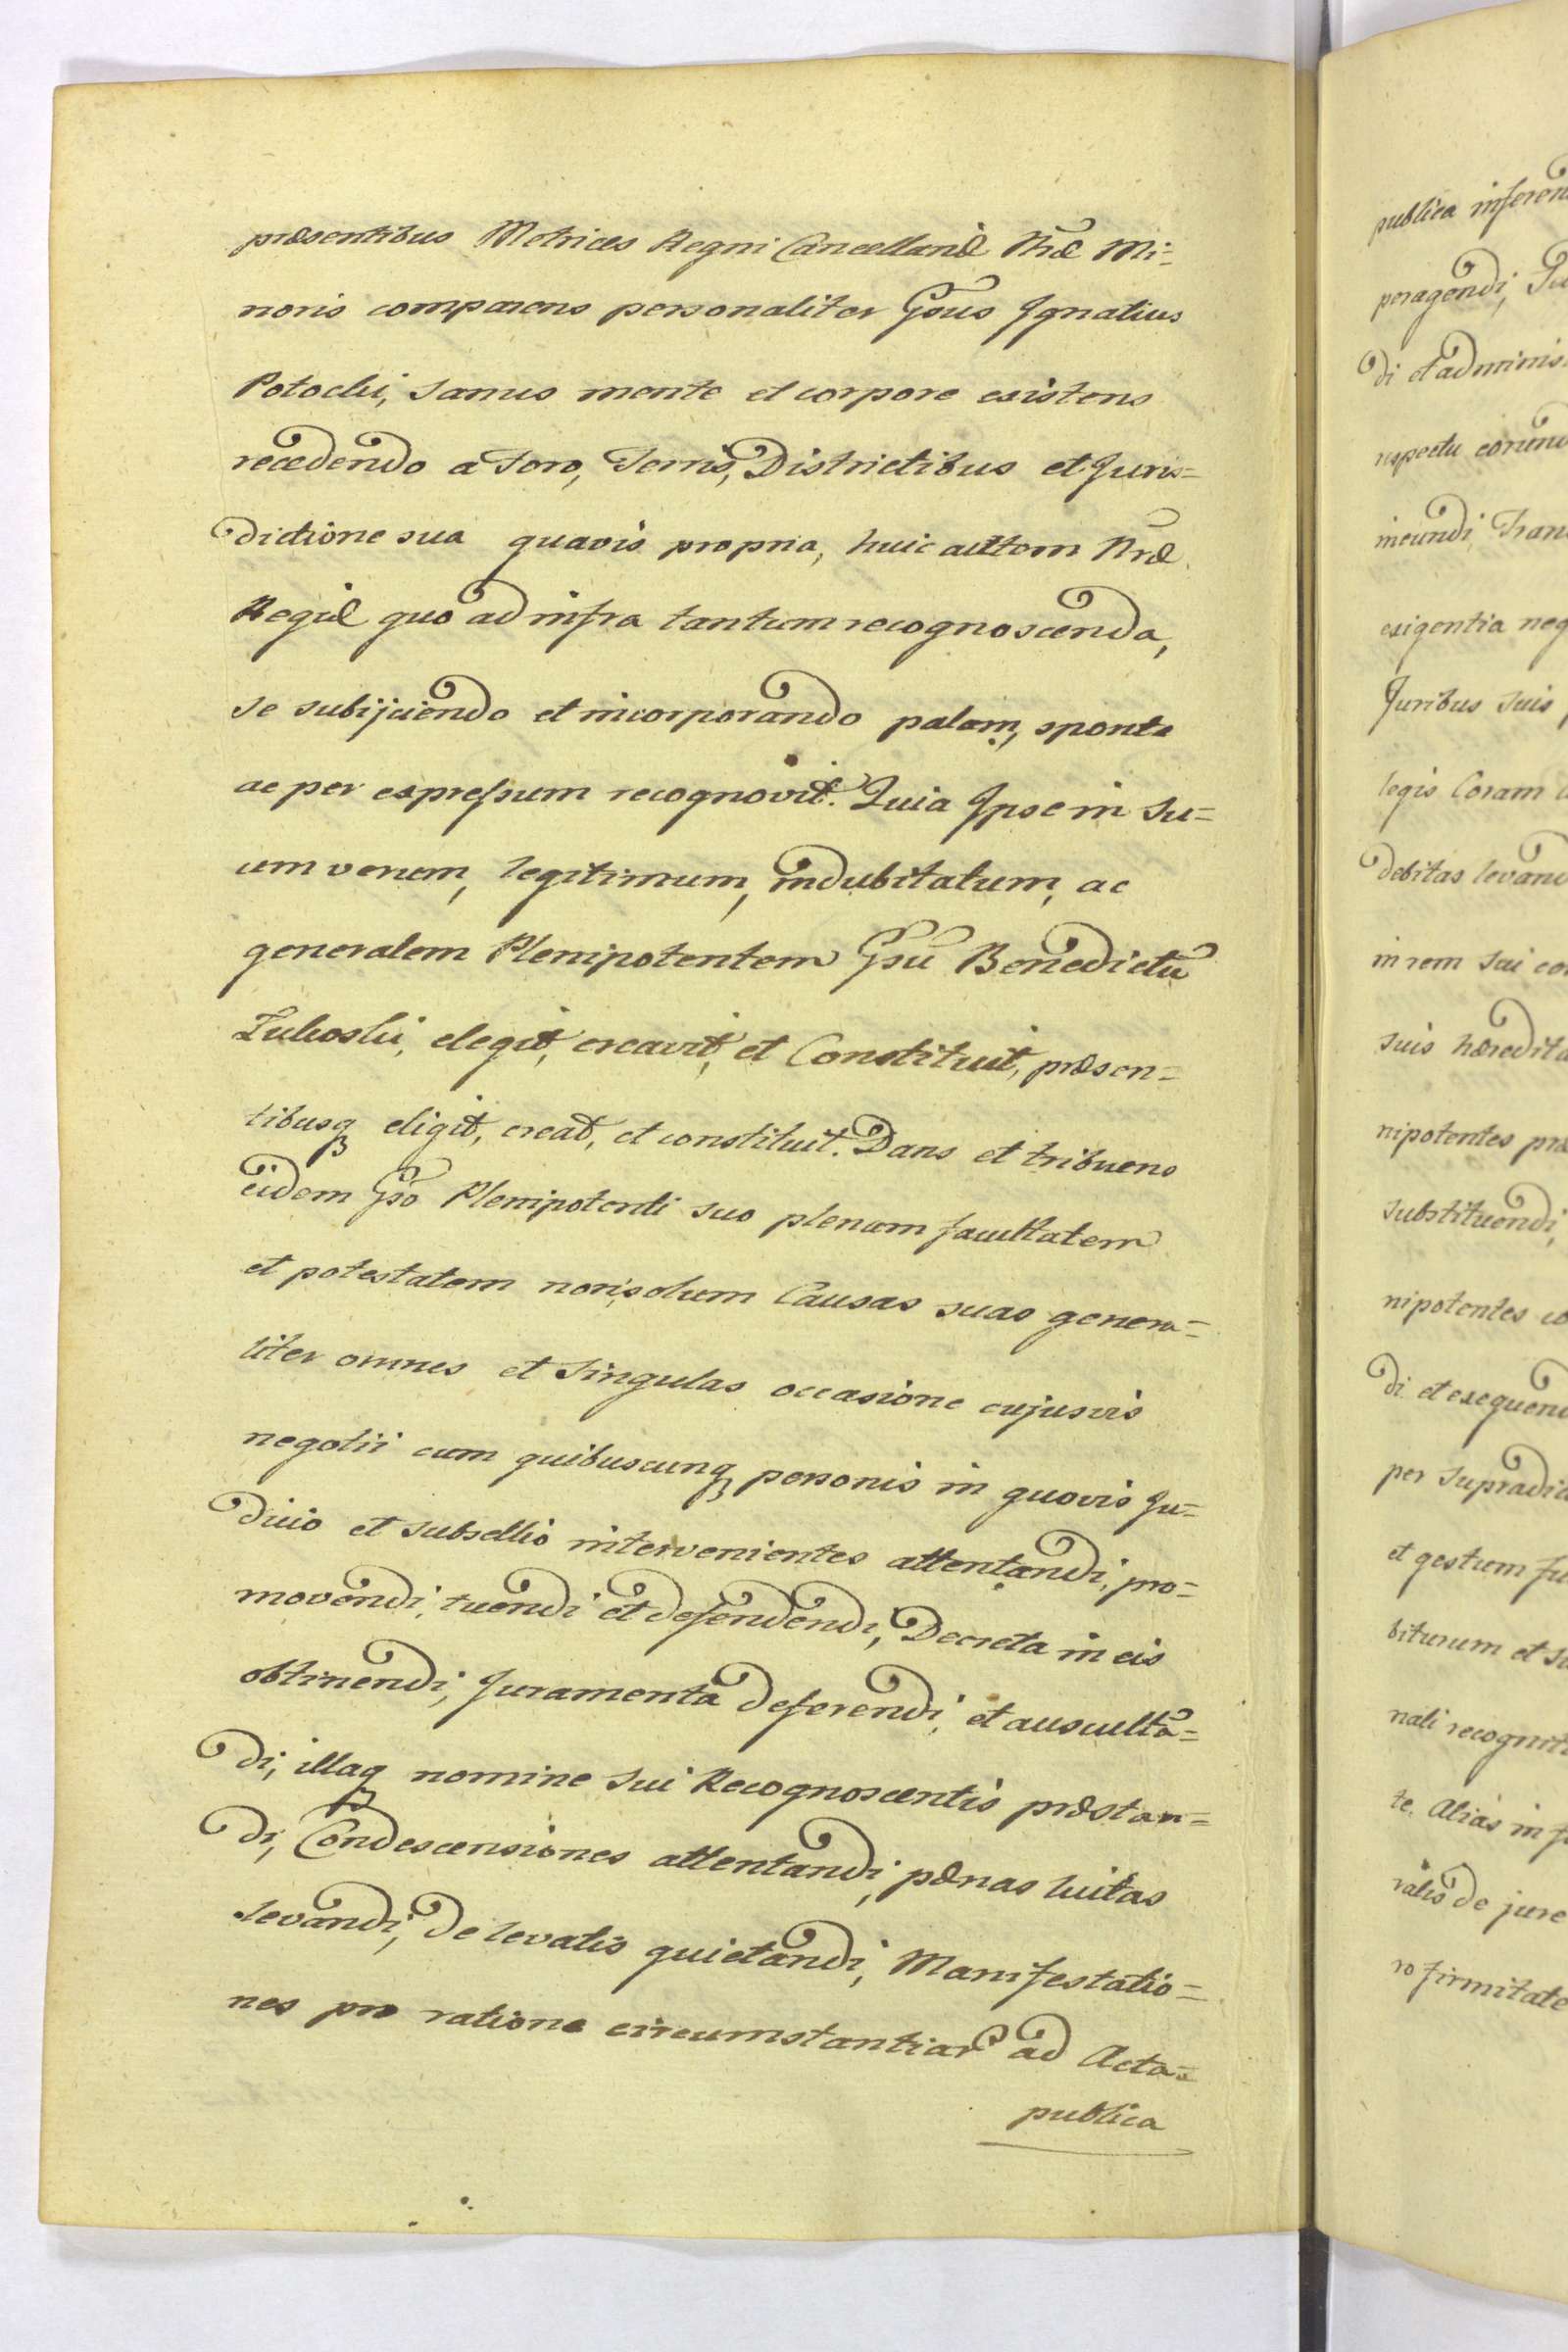 præsentibus Metrices Regni Cancellariæ Nræ Mi=
noris comparens personaliter Gsus Ignatius
Potocki, sanus mente et corpore existens
recedendo a Foro, Terris, Districtibus et Juris=
dictione sua quavis propria, huic autem Nræ
Regiæ quo ad infra tantum recognoscenda,
se subijciendo et incorporando palam, sponte
ac per expressum recognovit. Quia Ipse in su=
um verum, legitimum, indubitatum, ac
generalem Plenipotentem Gsū Benedictū
elegit, creavit, et Constituit, præsen=
tibusq eligit, creat, et constituit. Dans et tribuens
eidem Gso Plenipotenti suo plenam facultatem
et potestatem non solum Causas suas genera=
liter omnes et singulas occasione cujusvis
negotii cum quibuscunq personis in quovis Ju=
dicio et subsellio intervenientes attentandi, pro=
movendi, tuendi et defendendi, Decreta in eis
obtinendi, Juramenta deferendi, et ausculta=
di, illaq nomine sui Recognoscentis præstan=
di, Condescensiones attentandi, pænas luitas
levandi, de levatis quietandi, Manifestatio=
nes pro ratione circumstantiar ad Acta=
publica
publica inferen
peragendi, Ju
di et adminis
respectu eorund
ineundi, Tran
exigentia neg
Juribus suis
legis Coram
debitas levand
in rem sui co
suis hæredita
nipotentes præ
substituendi,
nipotentes co
di et exequend
per supradic
et gestum fu
biturum et s
nali recogniti
te. Alias in f
ralis de jure
ro firmitate